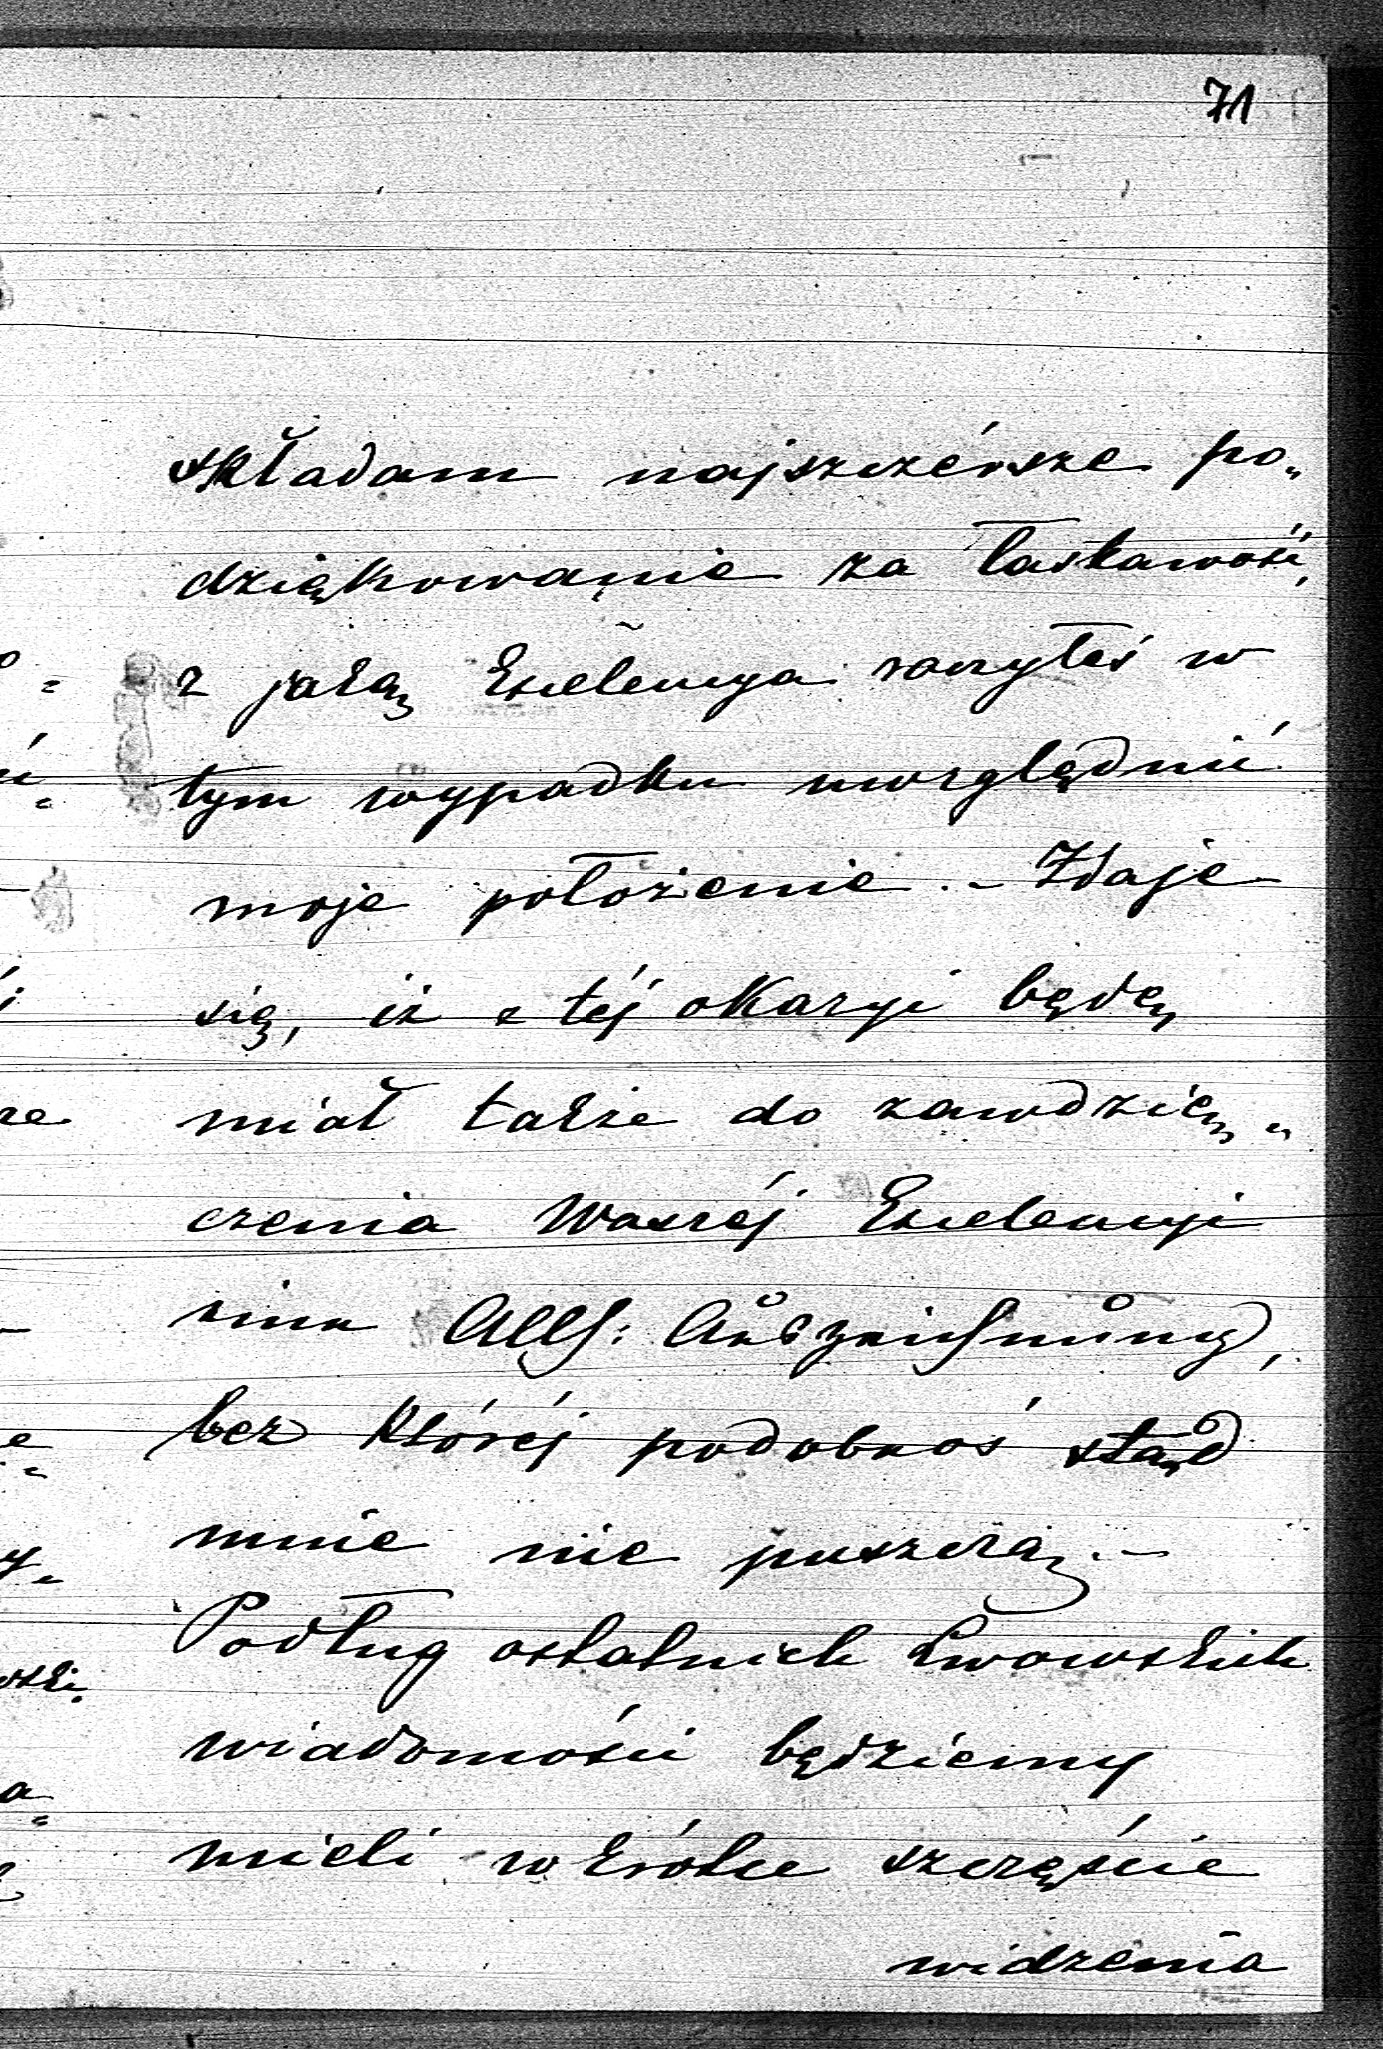 71
składam najszczérsze po„
dziękowanie za łaskawość,
z jaką Excelencya raczyłeś w
tym wypadku uwzględnić
moje położenie. – Zdaje
się, iż z téj okazyi będę
miał także do zawdzię„
czenia Waszéj Excelencyi
eine Allh: Auszeichnung,
bez któréj podobnoś stąd
mnie nie puszczą. –
Podług ostatnich Lwowskich
wiadomości będziemy
mieli wkrótce szczęście
widzenia